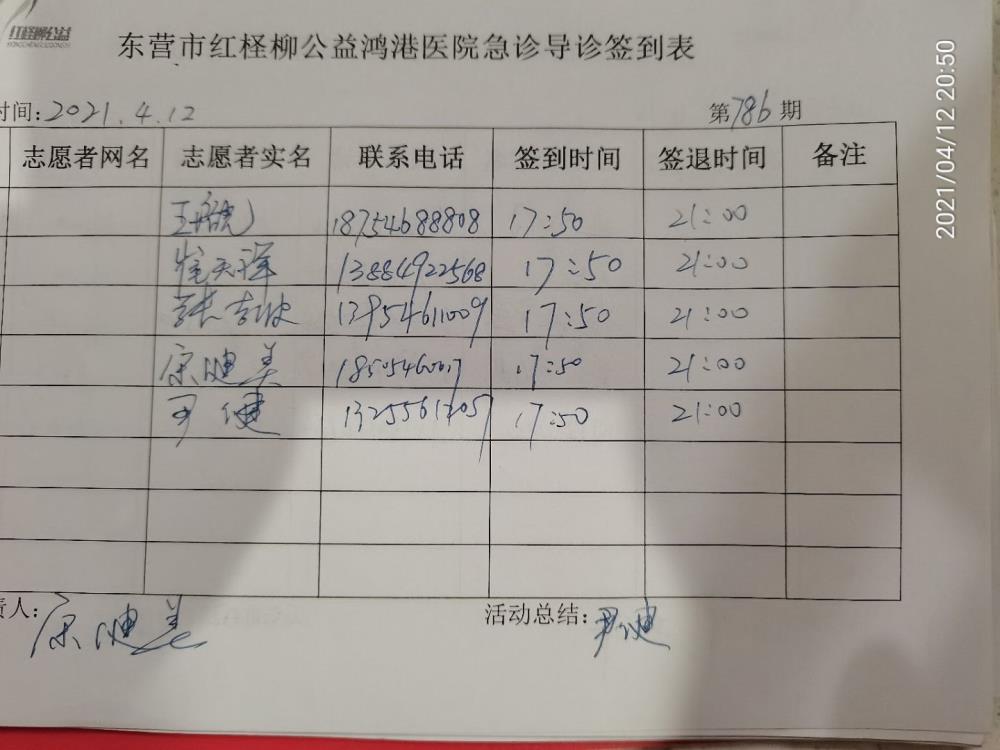 红柽柳公益
东营市红柽柳公益鸿港医院急诊导诊签到表
时间:2021.4.12 第786期
志愿者网名 志愿者实名 联系电话 签到时间 签退时间 备注
18754688808 17:50 21:00
崔天祥 13884922568 17:50 21:00
张吉波 13954611009 17:50 21:00
宗健美 17:50 21:00
尹健 17:50 21:00
责人: 宗健美 活动总结: 尹健
2021/04/12 20:50